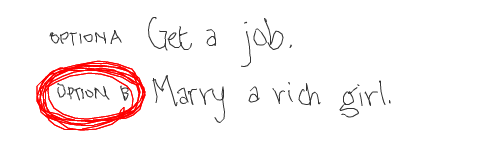 OPTION A Get a job.
OPTION B Marry a rich girl.